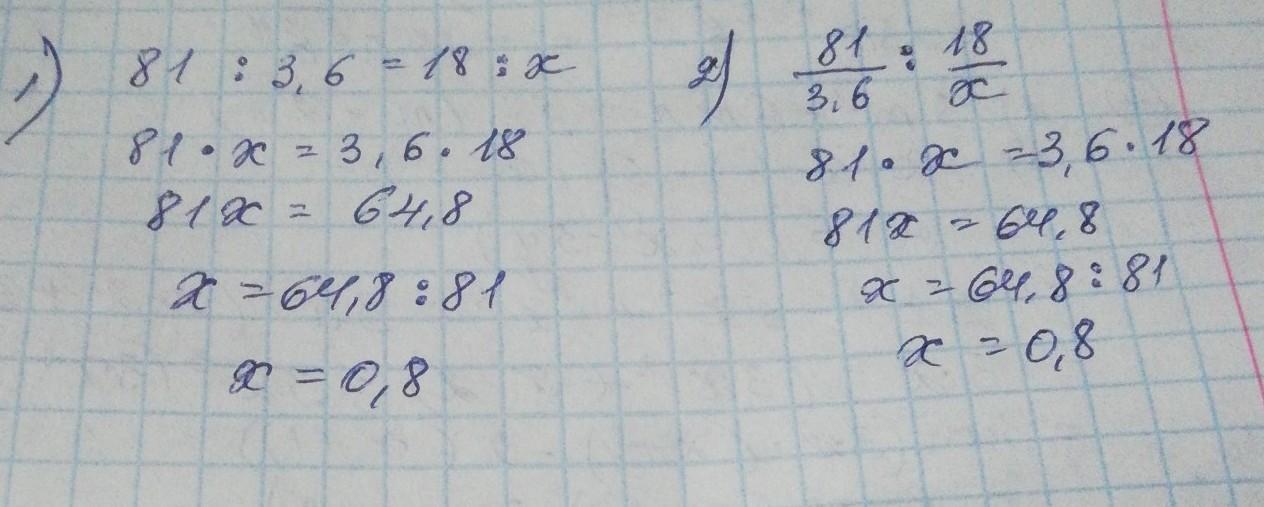 1) 81 : 3,6 = 18 : x
81 · x = 3,6 · 18
81x = 64,8
x = 64,8 : 81
x = 0,8
2) 81/3,6 : 18/x
81 · x = 3,6 · 18
81x = 64,8
x = 64,8 : 81
x = 0,8